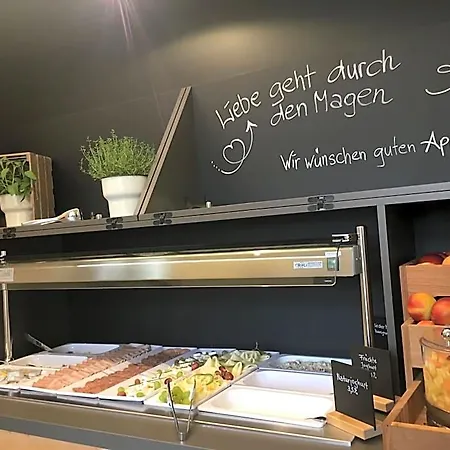 Liebe geht durch
den Magen
Wir wünschen guten Ap
Früchte
Joghurt
Naturjoghurt